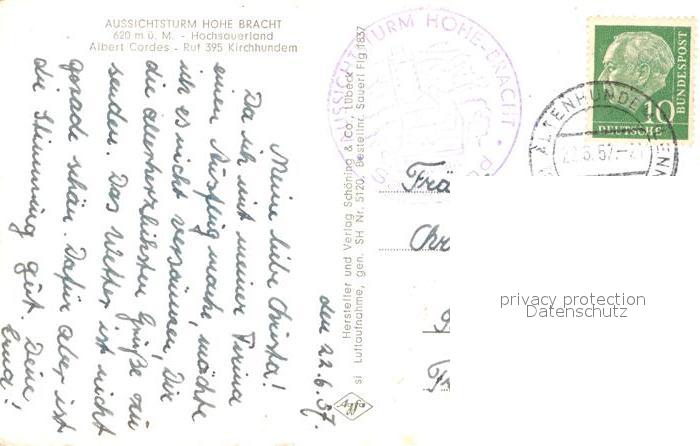 AUSSICHTSTURM HOHE BRACHT
620 m ü. M. - Hochsauerland
Albert Cordes - Ruf 395 Kirchhundem
den 22.6.57.
Meine liebe Christa!
Da ich mit meiner Firma
einen Ausflug mache, möchte
ich es nicht versäumen, Dir
die allerherzlichsten Grüße zu
senden. Das Wetter ist nicht
gerade schön. Dafür aber ist
die Stimmung gut. Deine
Hersteller und Verlag Schöning & Co., Lübeck
si Luftaufnahme, gen. SH Nr. 5120, Bestellnr. Sauerl Flg 1837
Agfa
AUSSICHTSTURM HOHE-BRACHT
ALTENHUNDEM
10
DEUTSCHE
BUNDESPOST
Frä
Chr
privacy protection
Datenschutz